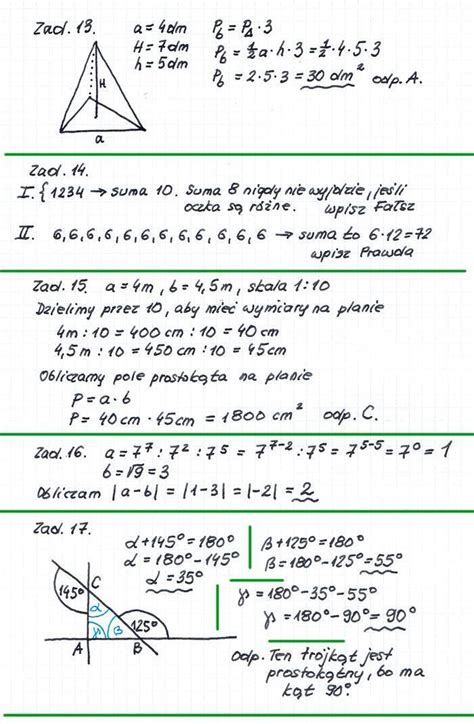 Zad. 13.
a = 4dm
H = 7dm
h = 5dm
P_b = P_Δ · 3
P_b = 1/2 a · h · 3 = 1/2 · 4 · 5 · 3
P_b = 2 · 5 · 3 = 30 dm² odp. A.
H
a
Zad. 14.
I. { 1234 → suma 10. Suma 8 nigdy nie wyjdzie, jeśli
oczka są różne. wpisz Fałsz
II. 6,6,6,6,6,6,6,6,6,6,6,6 → suma to 6·12=72
wpisz Prawda
Zad. 15. a = 4m, b = 4,5m, skala 1:10
Dzielimy przez 10, aby mieć wymiary na planie
4m : 10 = 400 cm : 10 = 40 cm
4,5m : 10 = 450 cm : 10 = 45cm
Obliczamy pole prostokąta na planie
P = a · b
P = 40 cm · 45cm = 1800 cm² odp. C.
Zad. 16. a = 7⁷ : 7² : 7⁵ = 7⁷⁻² : 7⁵ = 7⁵⁻⁵ = 7⁰ = 1
b = √9 = 3
Obliczam |a-b| = |1-3| = |-2| = 2
Zad. 17.
α + 145° = 180°
α = 180° - 145°
α = 35°
β + 125° = 180°
β = 180° - 125° = 55°
γ = 180° - 35° - 55°
γ = 180° - 90° = 90°
C
145°
α
γ
β
125°
A
B
Odp. Ten trójkąt jest
prostokątny, bo ma
kąt 90°.